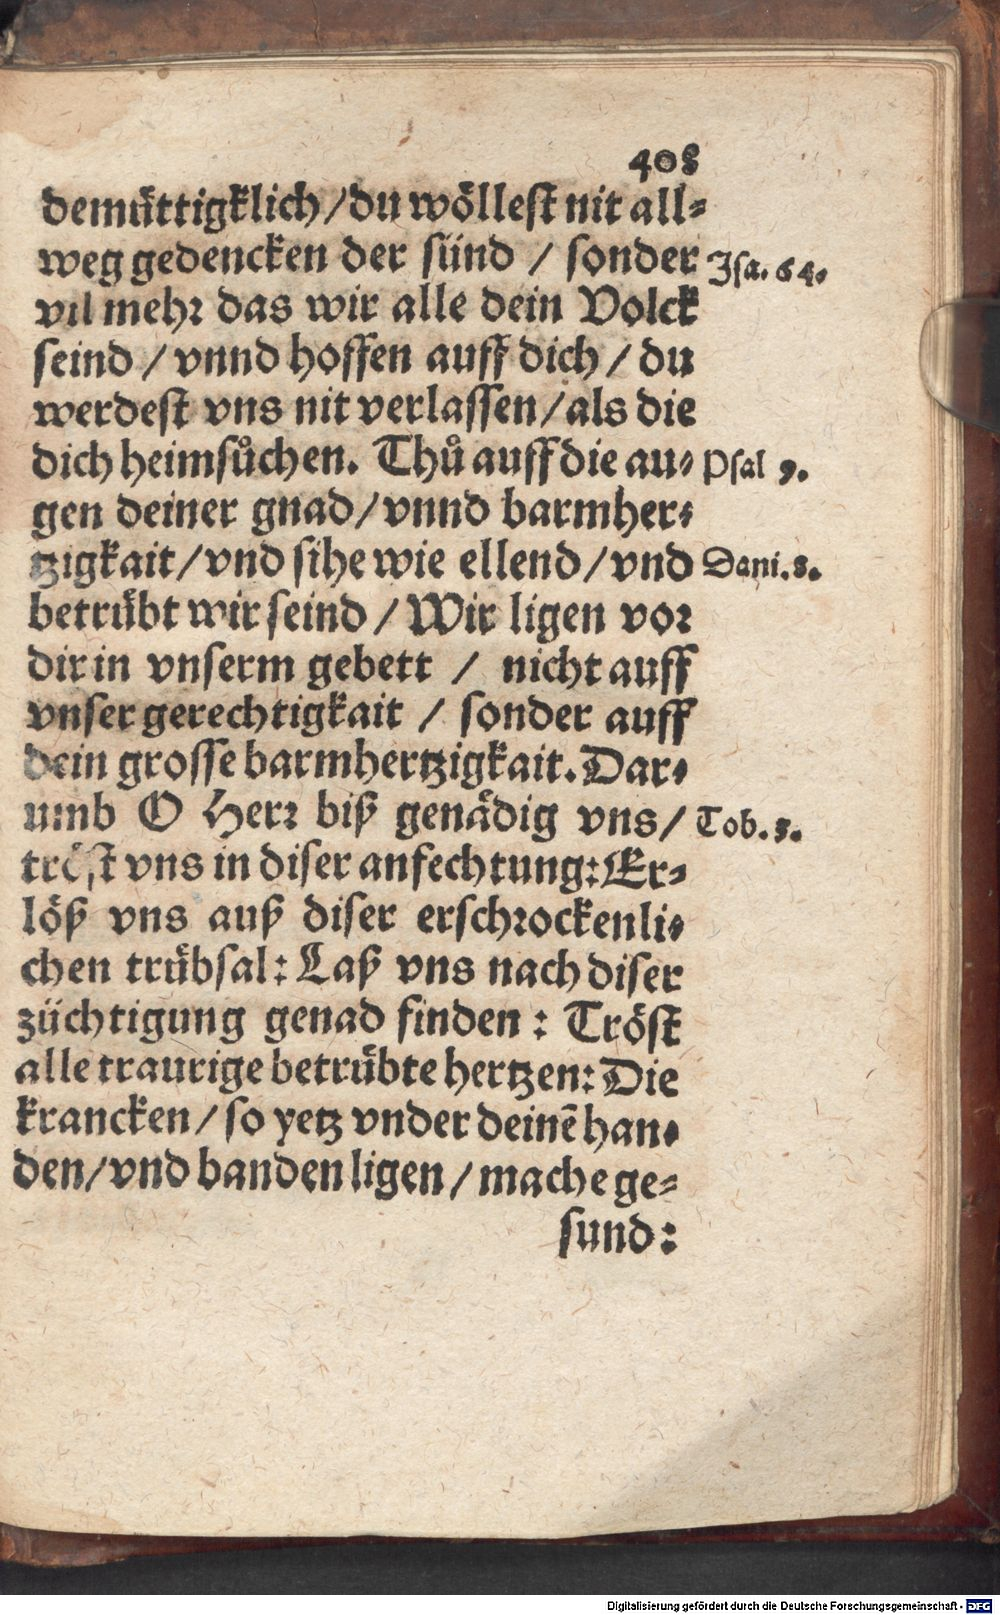 408
demüttigklich / du wöllest nit all⸗
weg gedencken der sünd / sonder Isa. 64.
vil mehr das wir alle dein Volck
seind / vnnd hoffen auff dich / du
werdest vns nit verlassen / als die
dich heimsůchen. Thů auff die au⸗ Psal 9.
gen deiner gnad / vnnd barmher⸗
tzigkait / vnd sihe wie ellend / vnd Dani. 8.
betrübt wir seind / Wir ligen vor
dir in vnserm gebett / nicht auff
vnser gerechtigkait / sonder auff
dein grosse barmhertzigkait. Dar⸗
umb O Herr biß genädig vns / Tob. 3.
tröst vns in diser anfechtung: Er⸗
löß vns auß diser erschrockenli⸗
chen trübsal: Laß vns nach diser
züchtigung genad finden: Tröst
alle traurige betrübte hertzen: Die
krancken / so yetz vnder deinē han⸗
den / vnd banden ligen / mache ge⸗
sund:
Digitalisierung gefördert durch die Deutsche Forschungsgemeinschaft - DFG